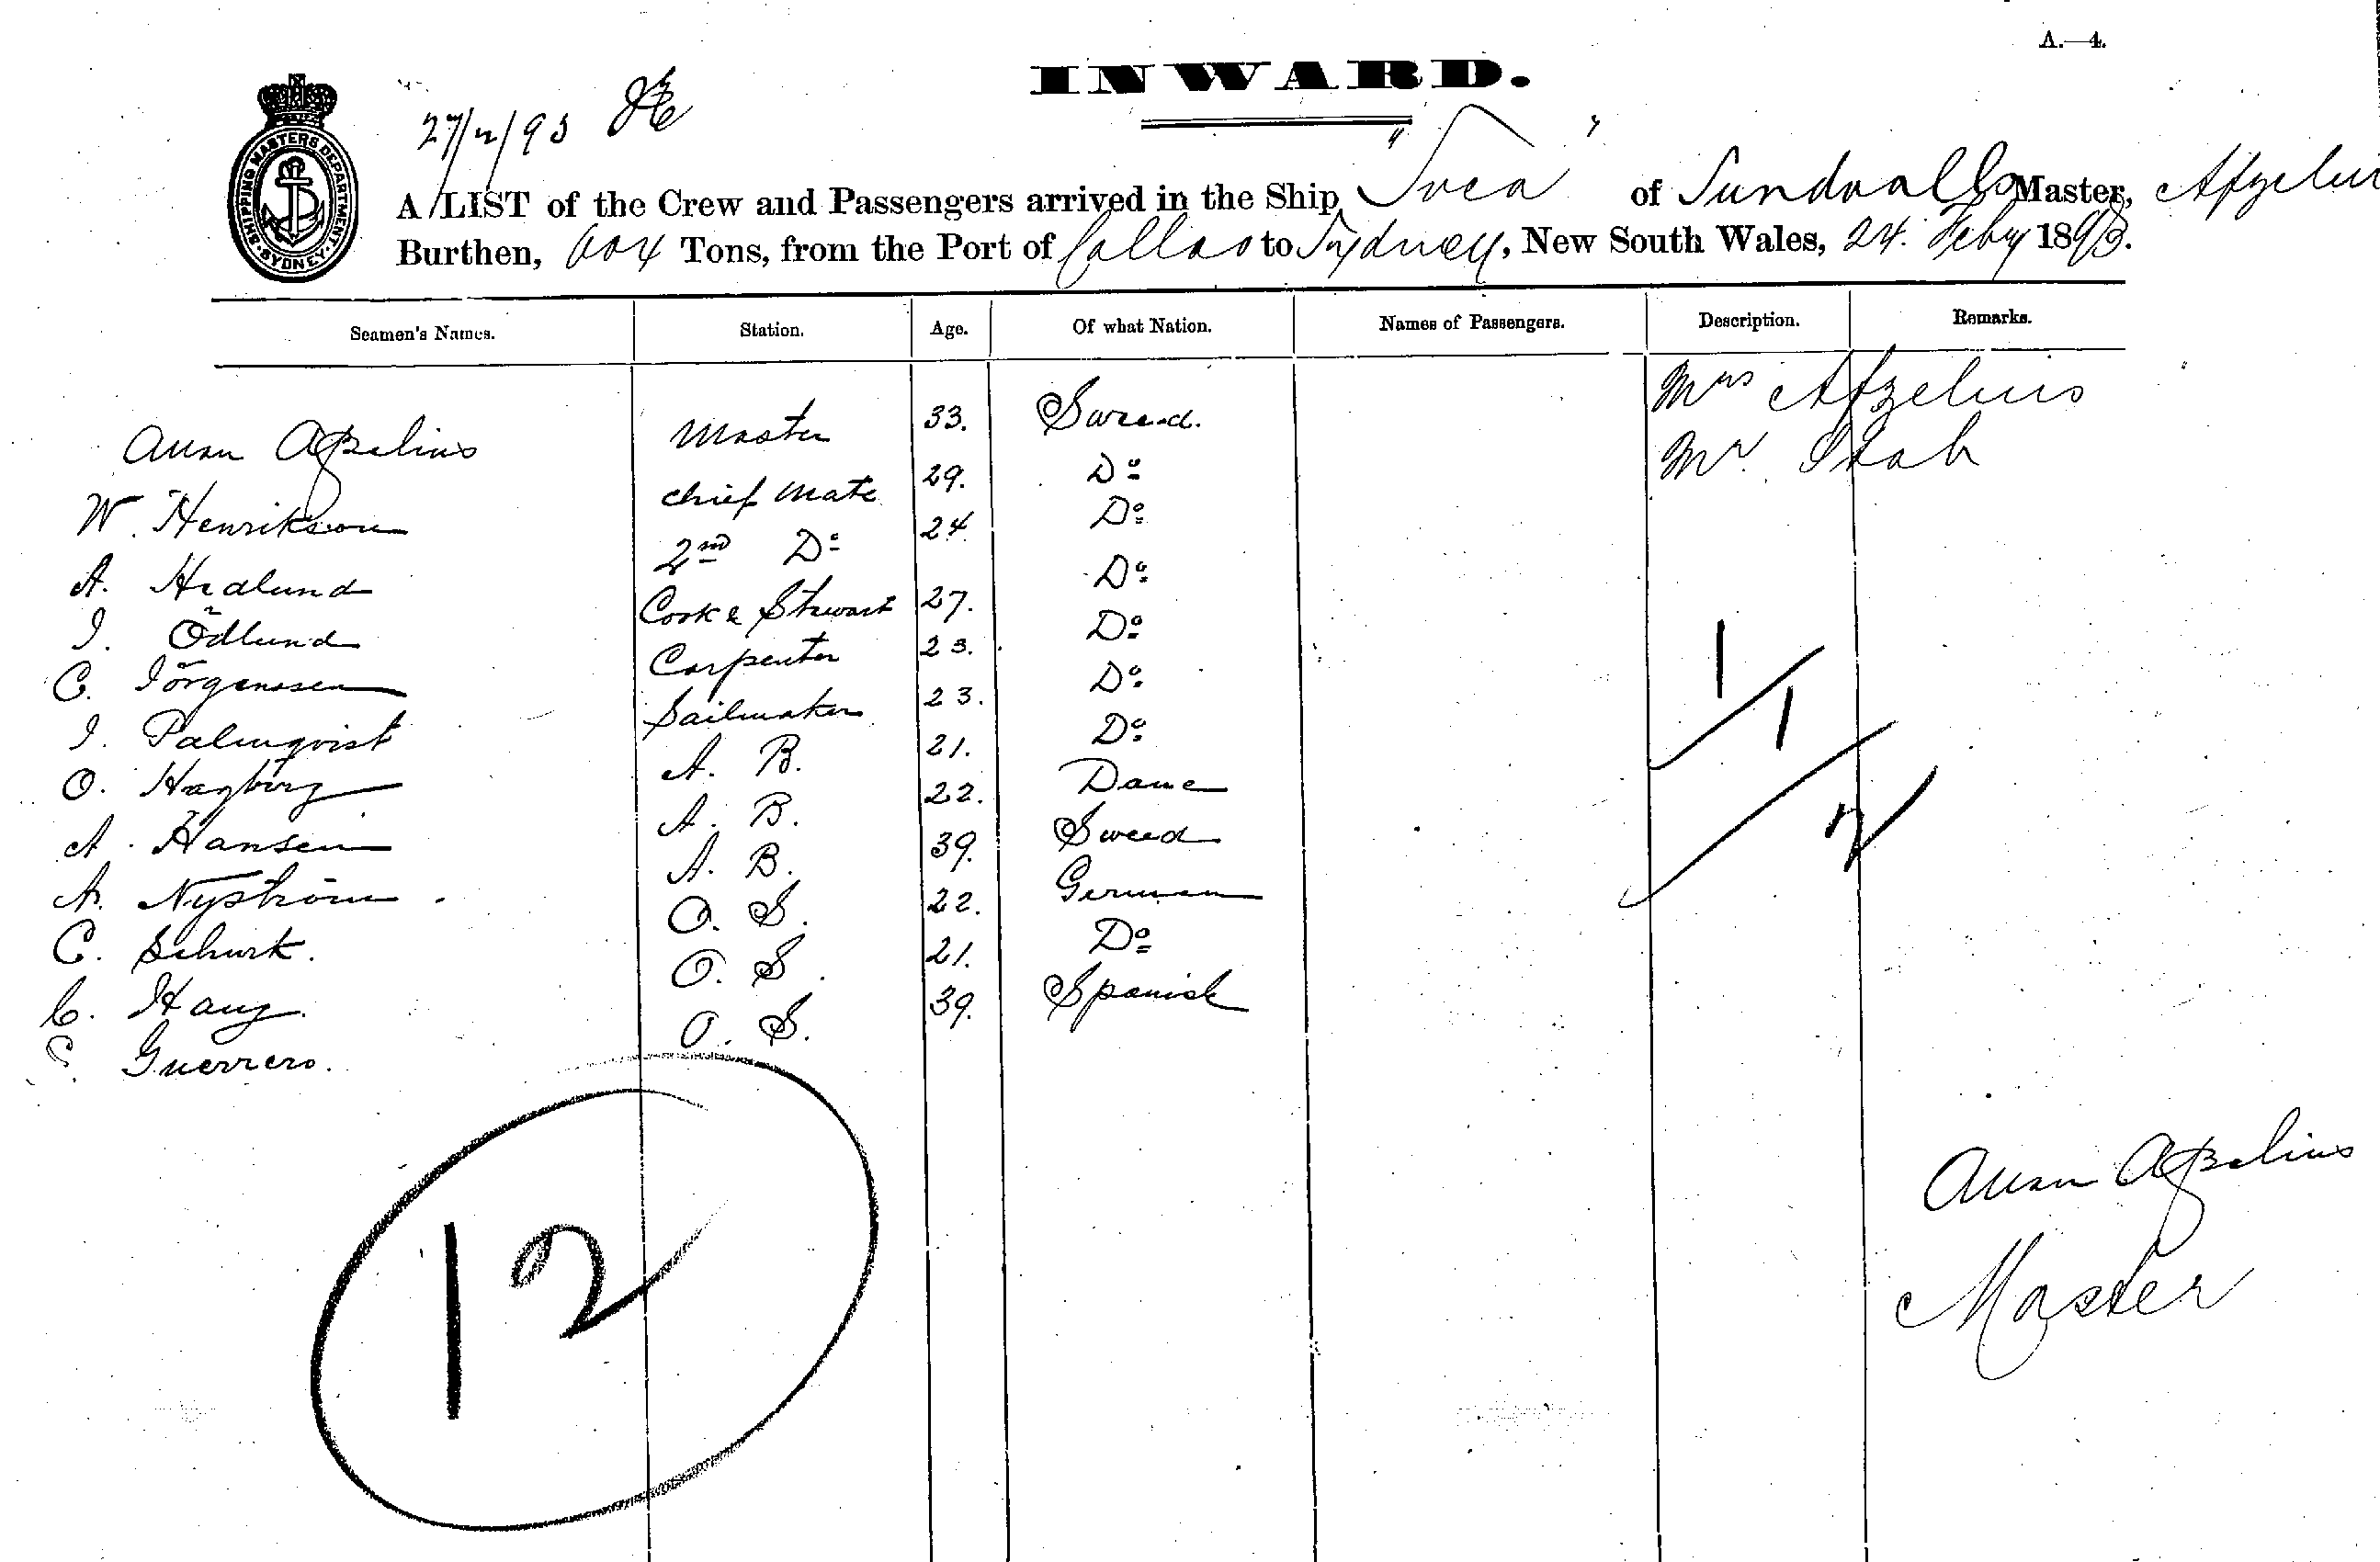 A.—4.
INWARD.
27/2/93
SHIPPING MASTERS DEPARTMENT SYDNEY
A LIST of the Crew and Passengers arrived in the Ship "Svea" of Sundsvall Master, Afzelius
Burthen, 604 Tons, from the Port of Callao to Sydney, New South Wales, 24. Feby 1893.
Seamen's Names. Station. Age. Of what Nation. Names of Passengers. Description. Remarks.
Allan Afzelius Master 33. Sweed. Mrs Afzelius
W. Henrikson Chief Mate 29. Do Mr. Stab
A. Hedlund 2nd Do 24 Do
I. Ödlund Cook & Stewart 27. Do
C. Jörgensen Carpenter 23. Do
I. Palmqvist Sailmaker 23. Do
O. Hagberg A. B. 21. Do
A. Hansen A. B. 22. Dane
A. Nyström A. B. 39. Sweed
C. Schurk. O. S. 22. German
C. Haug. O. S. 21. Do
Guerrero. O. S. 39. Spanish
1/1/2
12
Allan Afzelius
Master